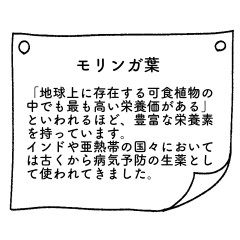 モリンガ葉
「地球上に存在する可食植物の
中でも最も高い栄養価がある」
といわれるほど、豊富な栄養素
を持っています。
インドや亜熱帯の国々において
は古くから病気予防の生薬とし
て使われてきました。